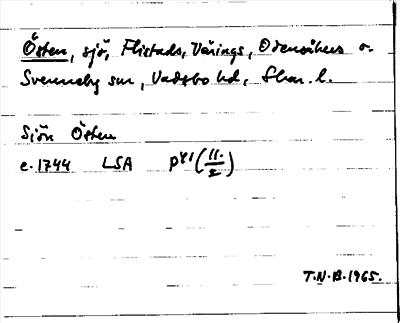 Östen, sjö, Flistads, Värings, Odensåkers o.
Svenneby snr, Vadsbo hd, Skar. l.
Sjön Östen
e. 1744 LSA P41 (11/2)
T.N.B. 1965.